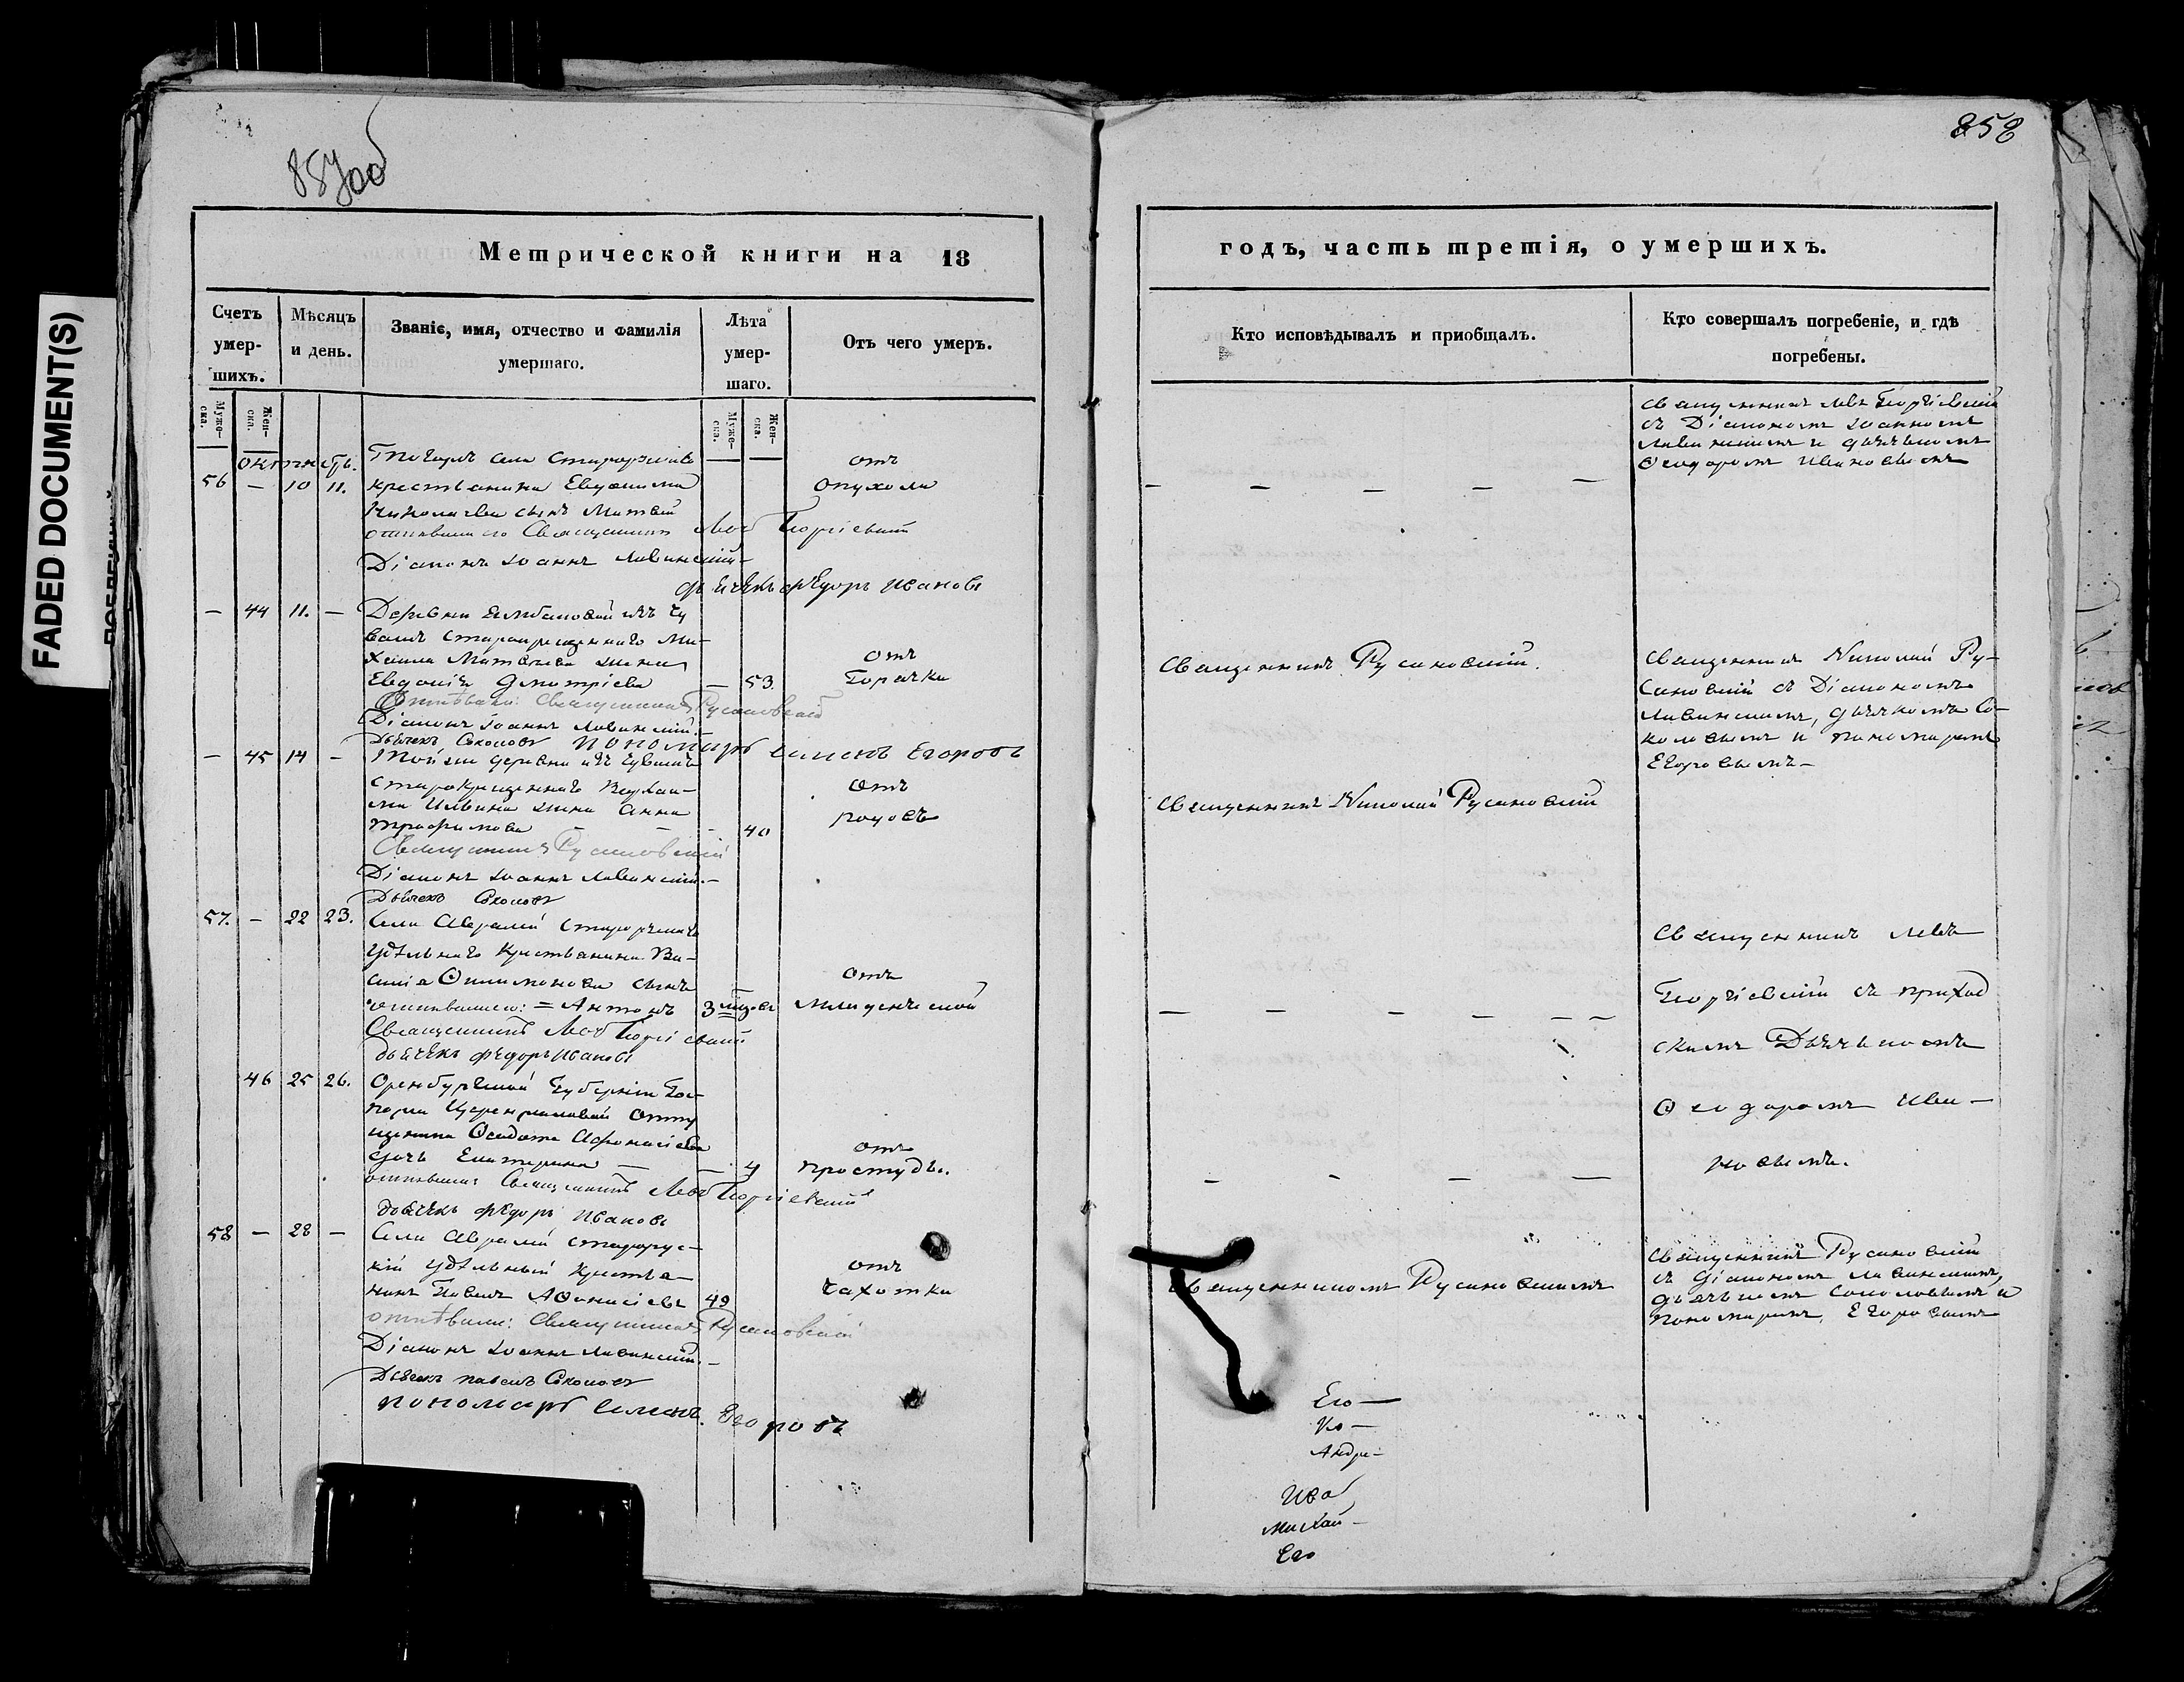 FADED DOCUMENT(S)
857об
858
Метрической книги на 18
годъ, часть третія, о умершихъ.
Счетъ умер-шихъ.
Мѣсяцъ и день.
Званіе, имя, отчество и фамилія умершаго.
Лѣта умер-шаго.
Отъ чего умеръ.
Кто исповѣдывалъ и приобщалъ.
Кто совершалъ погребеніе, и гдѣ погребены.
Муже-ска.
Жен-ска.
Муже-ска.
Жен-ска.
октябрь.
56 — 10 11.
села
крестьянина Евдокима
Николаева сынъ Матвей
отпевали его Священникъ Левъ Георгіевский
Діаконъ Іоаннъ Ливинский
дьячекъ Федоръ Ивановъ
отъ
опухоли
— — — — —
Священникъ Левъ Георгіевский
съ Діакономъ Іоанномъ
Ливинскимъ и дьячькомъ
Ѳеодоромъ Ивановымъ
— 44 11. —
Деревни изъ чу
вашъ старокрещеннаго Ми-
хаила Матвѣева жена
Евдокія Дмитріева — 53.
Отпѣвали: Священникъ Русановский
Діаконъ Іоаннъ Ливинский.
Дьячекъ Соколовъ пономарь Семенъ Егоровъ
отъ
Горячки
Священникъ Русановский.
Священникъ Николай Ру-
сановский съ Діакономъ
Ливинскимъ, дьячкомъ Со-
коловымъ и пономаремъ
Егоровымъ —
— 45 14 —
Той же деревни изъ чувашъ
старокрещеннаго
Ильина жена Анна
Трофимова — — — 40
Священникъ Русановский
Діаконъ Іоаннъ Ливинский. —
Дьячекъ Соколовъ
отъ
родовъ
Священникъ Николай Русановский
57. — 22 23.
Села
удѣльнаго крестьянина Ва-
силія сынъ
отпевали: = Антонъ 3
Священникъ Левъ Георгіевский
дьячекъ Федоръ Ивановъ
отъ
младенческой
— — — — — —
Священникъ Левъ
Георгіевский съ приход
скимъ Дьячькомъ
Ѳеодоромъ Ива —
новымъ.
46 25 26.
Оренбургской Губерніи
дочь Екатерина — — 4
отпевали Священникъ Левъ Георгіевский
дьячекъ Федоръ Ивановъ
отъ
простуды.
— — — —
58 — 28 —
Села
кій удѣльный крестья-
нинъ Павелъ Аѳанасіевъ 49
отпѣвали: Священникъ Русановский
Діаконъ Іоаннъ Ливинский. —
Дьячекъ Павелъ Соколовъ
пономарь Семенъ. Егоровъ
отъ
чахотки
Священникомъ Русановскимъ
Священникъ Русановский
съ Діакономъ Ливинскимъ,
дьячькомъ Соколовымъ и
пономаремъ, Егоровымъ
Его —
Ко —
Андре —
Ива
Михай —
Его